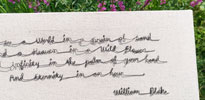 a World in a Grain of Sand
a Heaven in a Wild Flower
Infinity in the palm of your hand
And Eternity in an hour
William Blake